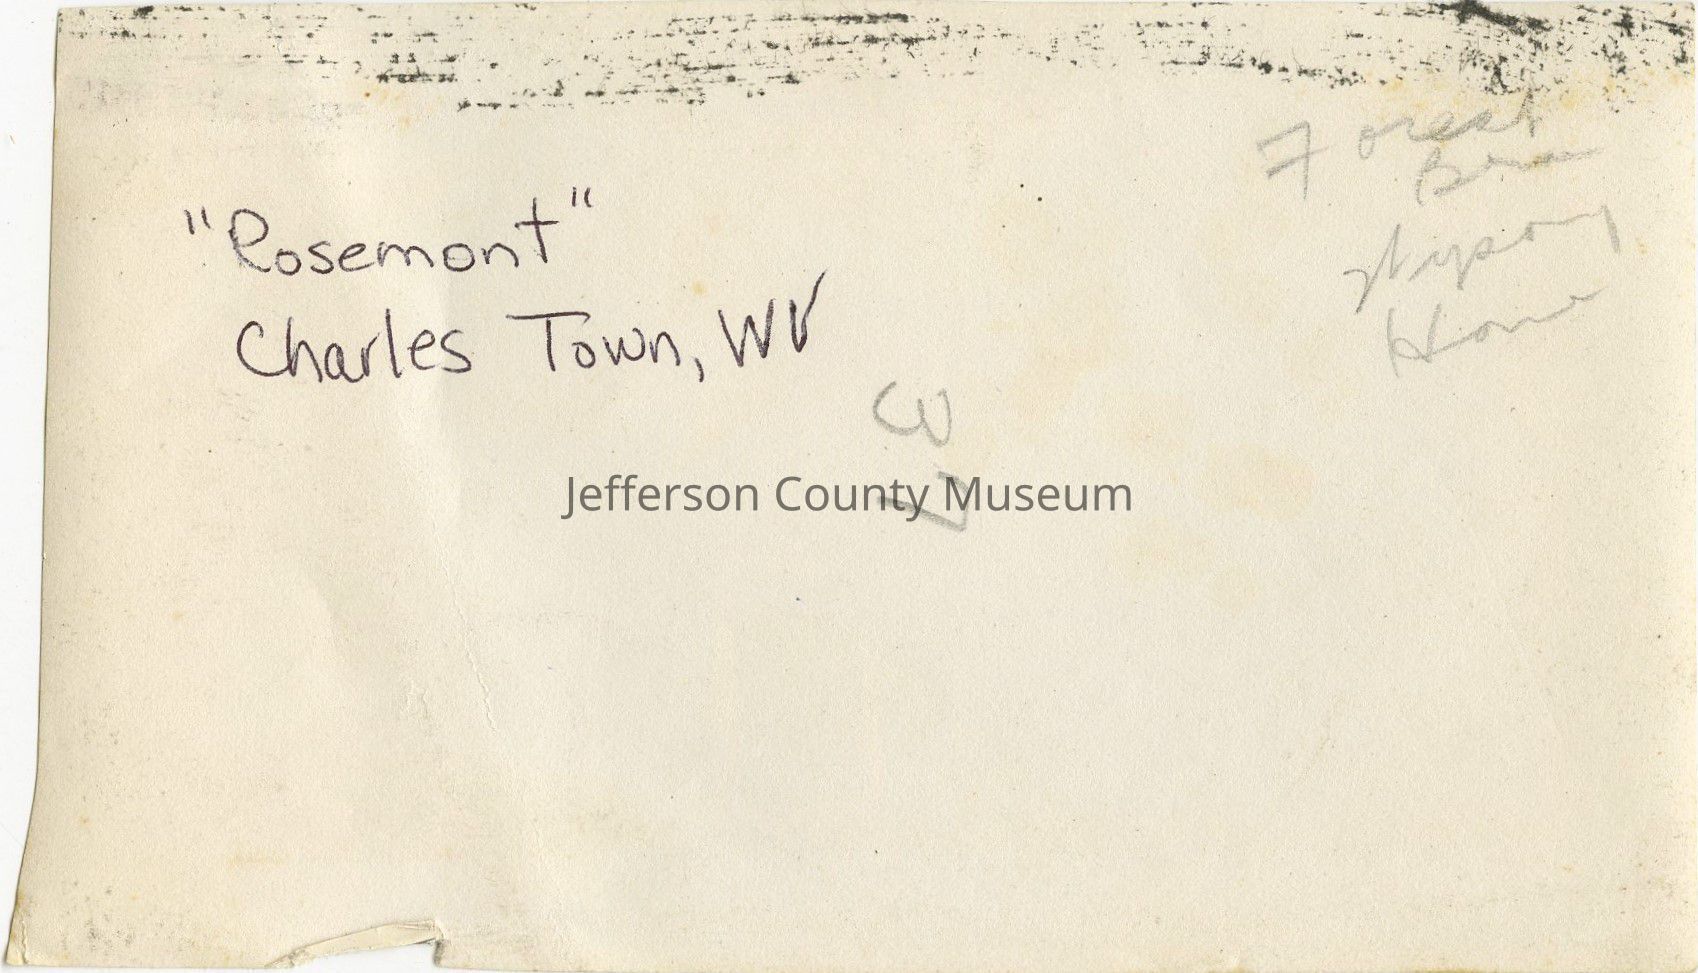 "Rosemont"
Charles Town, WV
Forest
Home
Jefferson County Museum